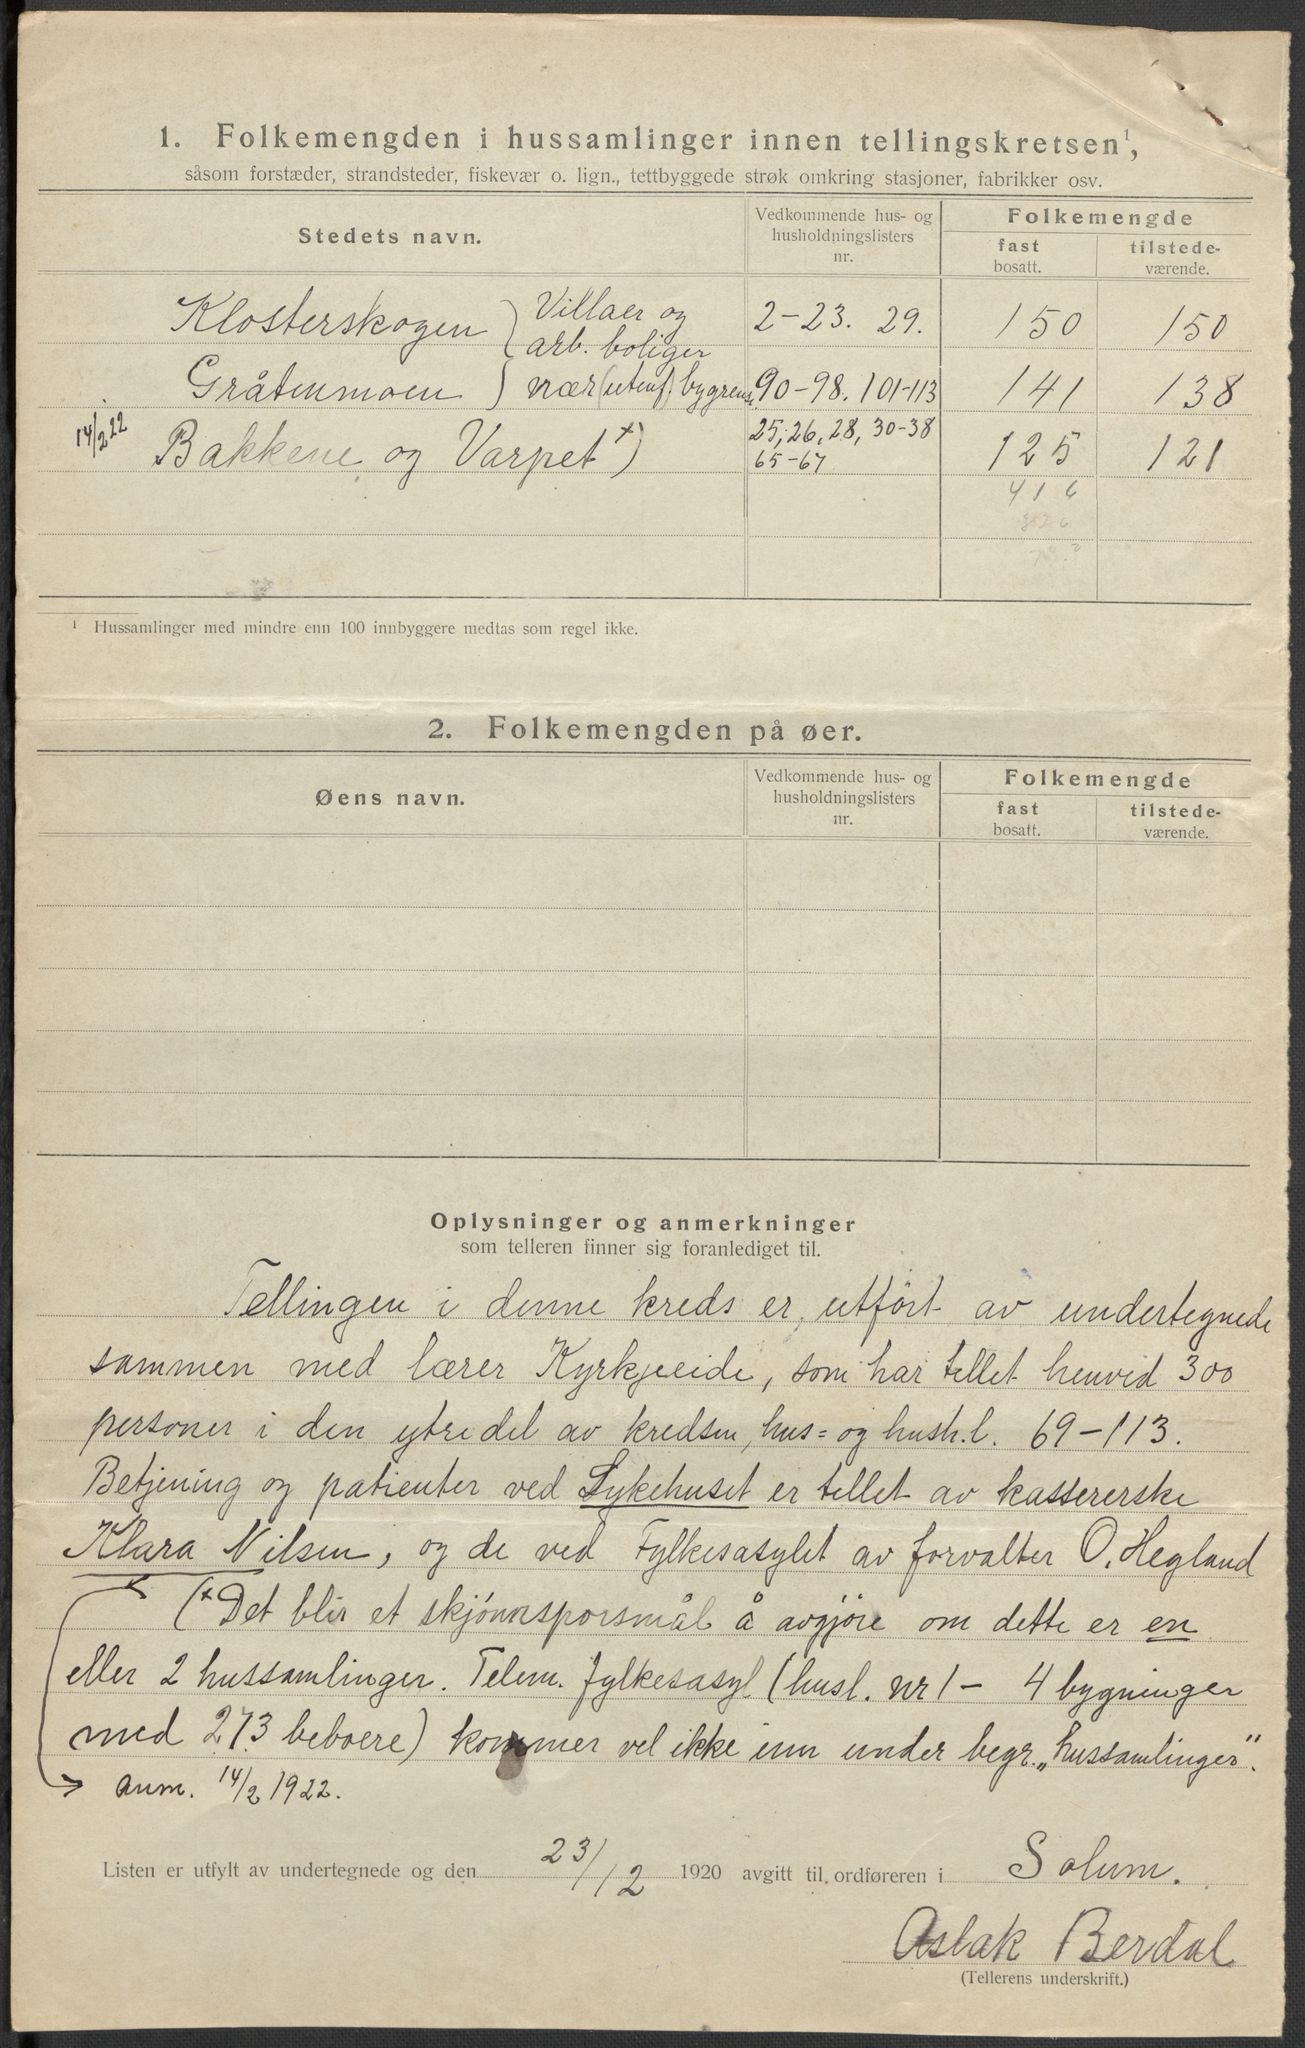 1. Folkemengden i hussamlinger innen tellingskretsen¹,
såsom forstæder, strandsteder, fiskevær o. lign., tettbyggede strøk omkring stasjoner, fabrikker osv.
Stedets navn. Vedkommende hus- og husholdningslisters nr. Folkemengde
fast bosatt. tilstede-værende.
Klosterskogen } Villaer og arb. boliger 2-23. 29. 150 150
Gråtenmoen } nær (utenf.) bygrense 90-98. 101-113 141 138
14/2 22 Bakkene og Varpet +) 25, 26, 28, 30-38 125 121
65-67
416
¹ Hussamlinger med mindre enn 100 innbyggere medtas som regel ikke.
2. Folkemengden på øer.
Øens navn. Vedkommende hus- og husholdningslisters nr. Folkemengde
fast bosatt. tilstede-værende.
Oplysninger og anmerkninger
som telleren finner sig foranlediget til.
Tellingen i denne kreds er utført av undertegnede
sammen med lærer Kyrkjeeide, som har tellet henved 300
personer i den ytre del av kredsen, hus= og hush.l. 69-113.
Betjening og patienter ved Sykehuset er tellet av kassererske
Klara Nilsen, og de ved Fylkesasylet av forvalter O. Hegland
(+ Det blir et skjønnsporsmål å avgjøre om dette er en
eller 2 hussamlinger. Telem. fylkesasyl (husl. nr 1 - 4 bygninger
med 273 beboere) kommer vel ikke inn under begr. „hussamlinger“.
→ anm. 14/2 1922.
Listen er utfylt av undertegnede og den 23/12 1920 avgitt til ordføreren i Solum.
Aslak Berdal
(Tellerens underskrift.)